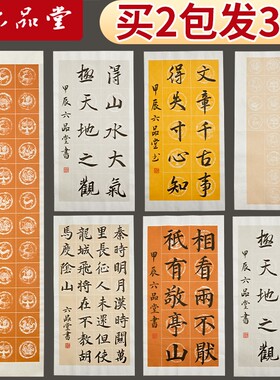 品堂
买2包发3
得山水大氣
極天地之觀
甲辰六品堂書
文章千古事
得失寸心知
甲辰六品堂书
秦時明月漢時關萬
里長征人未還但使
龍城飛將在不教胡
馬度陰山
六品堂書
相看兩不厭
衹有敬亭山
甲辰六品堂書
極天地之觀
甲辰六品堂書